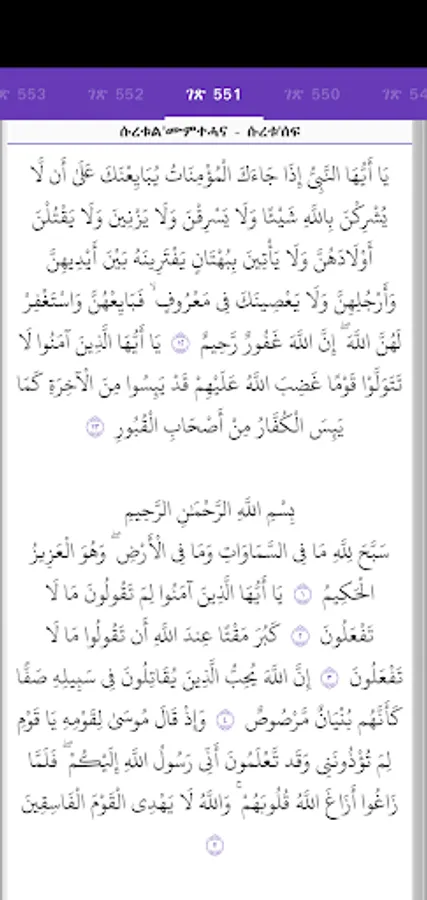 ገጽ 553 ገጽ 552 ገጽ 551 ገጽ 550 ገጽ 54
ሱረቱል'ሙምተሓና - ሱረቱ'ሰፍ
يَا أَيُّهَا النَّبِيُّ إِذَا جَاءَكَ الْمُؤْمِنَاتُ يُبَايِعْنَكَ عَلَىٰ أَن لَّا
يُشْرِكْنَ بِاللَّهِ شَيْئًا وَلَا يَسْرِقْنَ وَلَا يَزْنِينَ وَلَا يَقْتُلْنَ
أَوْلَادَهُنَّ وَلَا يَأْتِينَ بِبُهْتَانٍ يَفْتَرِينَهُ بَيْنَ أَيْدِيهِنَّ
وَأَرْجُلِهِنَّ وَلَا يَعْصِينَكَ فِي مَعْرُوفٍ ۙ فَبَايِعْهُنَّ وَاسْتَغْفِرْ
لَهُنَّ اللَّهَ ۖ إِنَّ اللَّهَ غَفُورٌ رَّحِيمٌ ١٢ يَا أَيُّهَا الَّذِينَ آمَنُوا لَا
تَتَوَلَّوْا قَوْمًا غَضِبَ اللَّهُ عَلَيْهِمْ قَدْ يَئِسُوا مِنَ الْآخِرَةِ كَمَا
يَئِسَ الْكُفَّارُ مِنْ أَصْحَابِ الْقُبُورِ ١٣
بِسْمِ اللَّهِ الرَّحْمَٰنِ الرَّحِيمِ
سَبَّحَ لِلَّهِ مَا فِي السَّمَاوَاتِ وَمَا فِي الْأَرْضِ ۖ وَهُوَ الْعَزِيزُ
الْحَكِيمُ ١ يَا أَيُّهَا الَّذِينَ آمَنُوا لِمَ تَقُولُونَ مَا لَا
تَفْعَلُونَ ٢ كَبُرَ مَقْتًا عِندَ اللَّهِ أَن تَقُولُوا مَا لَا
تَفْعَلُونَ ٣ إِنَّ اللَّهَ يُحِبُّ الَّذِينَ يُقَاتِلُونَ فِي سَبِيلِهِ صَفًّا
كَأَنَّهُم بُنْيَانٌ مَّرْصُوصٌ ٤ وَإِذْ قَالَ مُوسَىٰ لِقَوْمِهِ يَا قَوْمِ
لِمَ تُؤْذُونَنِي وَقَد تَّعْلَمُونَ أَنِّي رَسُولُ اللَّهِ إِلَيْكُمْ ۖ فَلَمَّا
زَاغُوا أَزَاغَ اللَّهُ قُلُوبَهُمْ ۚ وَاللَّهُ لَا يَهْدِي الْقَوْمَ الْفَاسِقِينَ